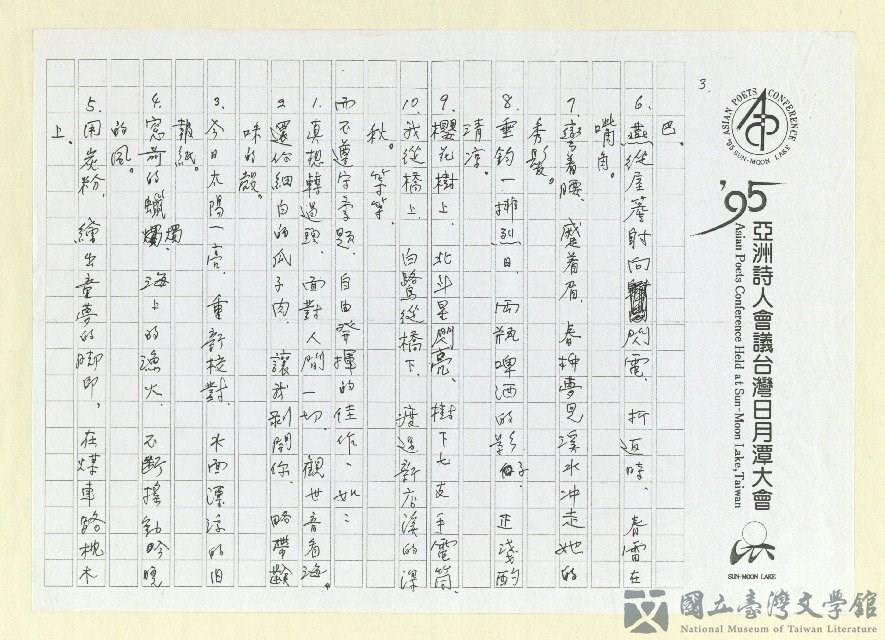 3.
ASIAN POETS CONFERENCE
'95 SUN-MOON LAKE
'95 亞洲詩人會議台灣日月潭大會
Asian Poets Conference Held at Sun-Moon Lake, Taiwan
SUN-MOON LAKE
巴。
6.燕從屋簷射向閃電、折返時、春雷在
嘴角。
7.彎着腰、蹙着眉、春柳夢見溪水冲走她的
秀髮。
8.垂釣一排烈日、兩瓶啤酒的影子、正淺酌
清凉。
9.櫻花樹上、北斗星閃亮、樹下七支手電筒。
10.我從橋上、白鷺從橋下、渡過新店溪的深
秋。等等。
而不遵守季題、自由發揮的佳作、如：
1.真想轉過頭、面對人間一切、觀世音看海。
2.還你細白的瓜子肉、讓我剝開你、略帶鹹
味的殼。
3.今日太陽一亮、重新校對、水面漂浮的旧
報紙。
4.窓前的蠟燭、海上的漁火、不断搖動今晚
的風。
5.用炭粉、繪出童夢的脚印、在煤車路枕木
上、
國立臺灣文學館
National Museum of Taiwan Literature